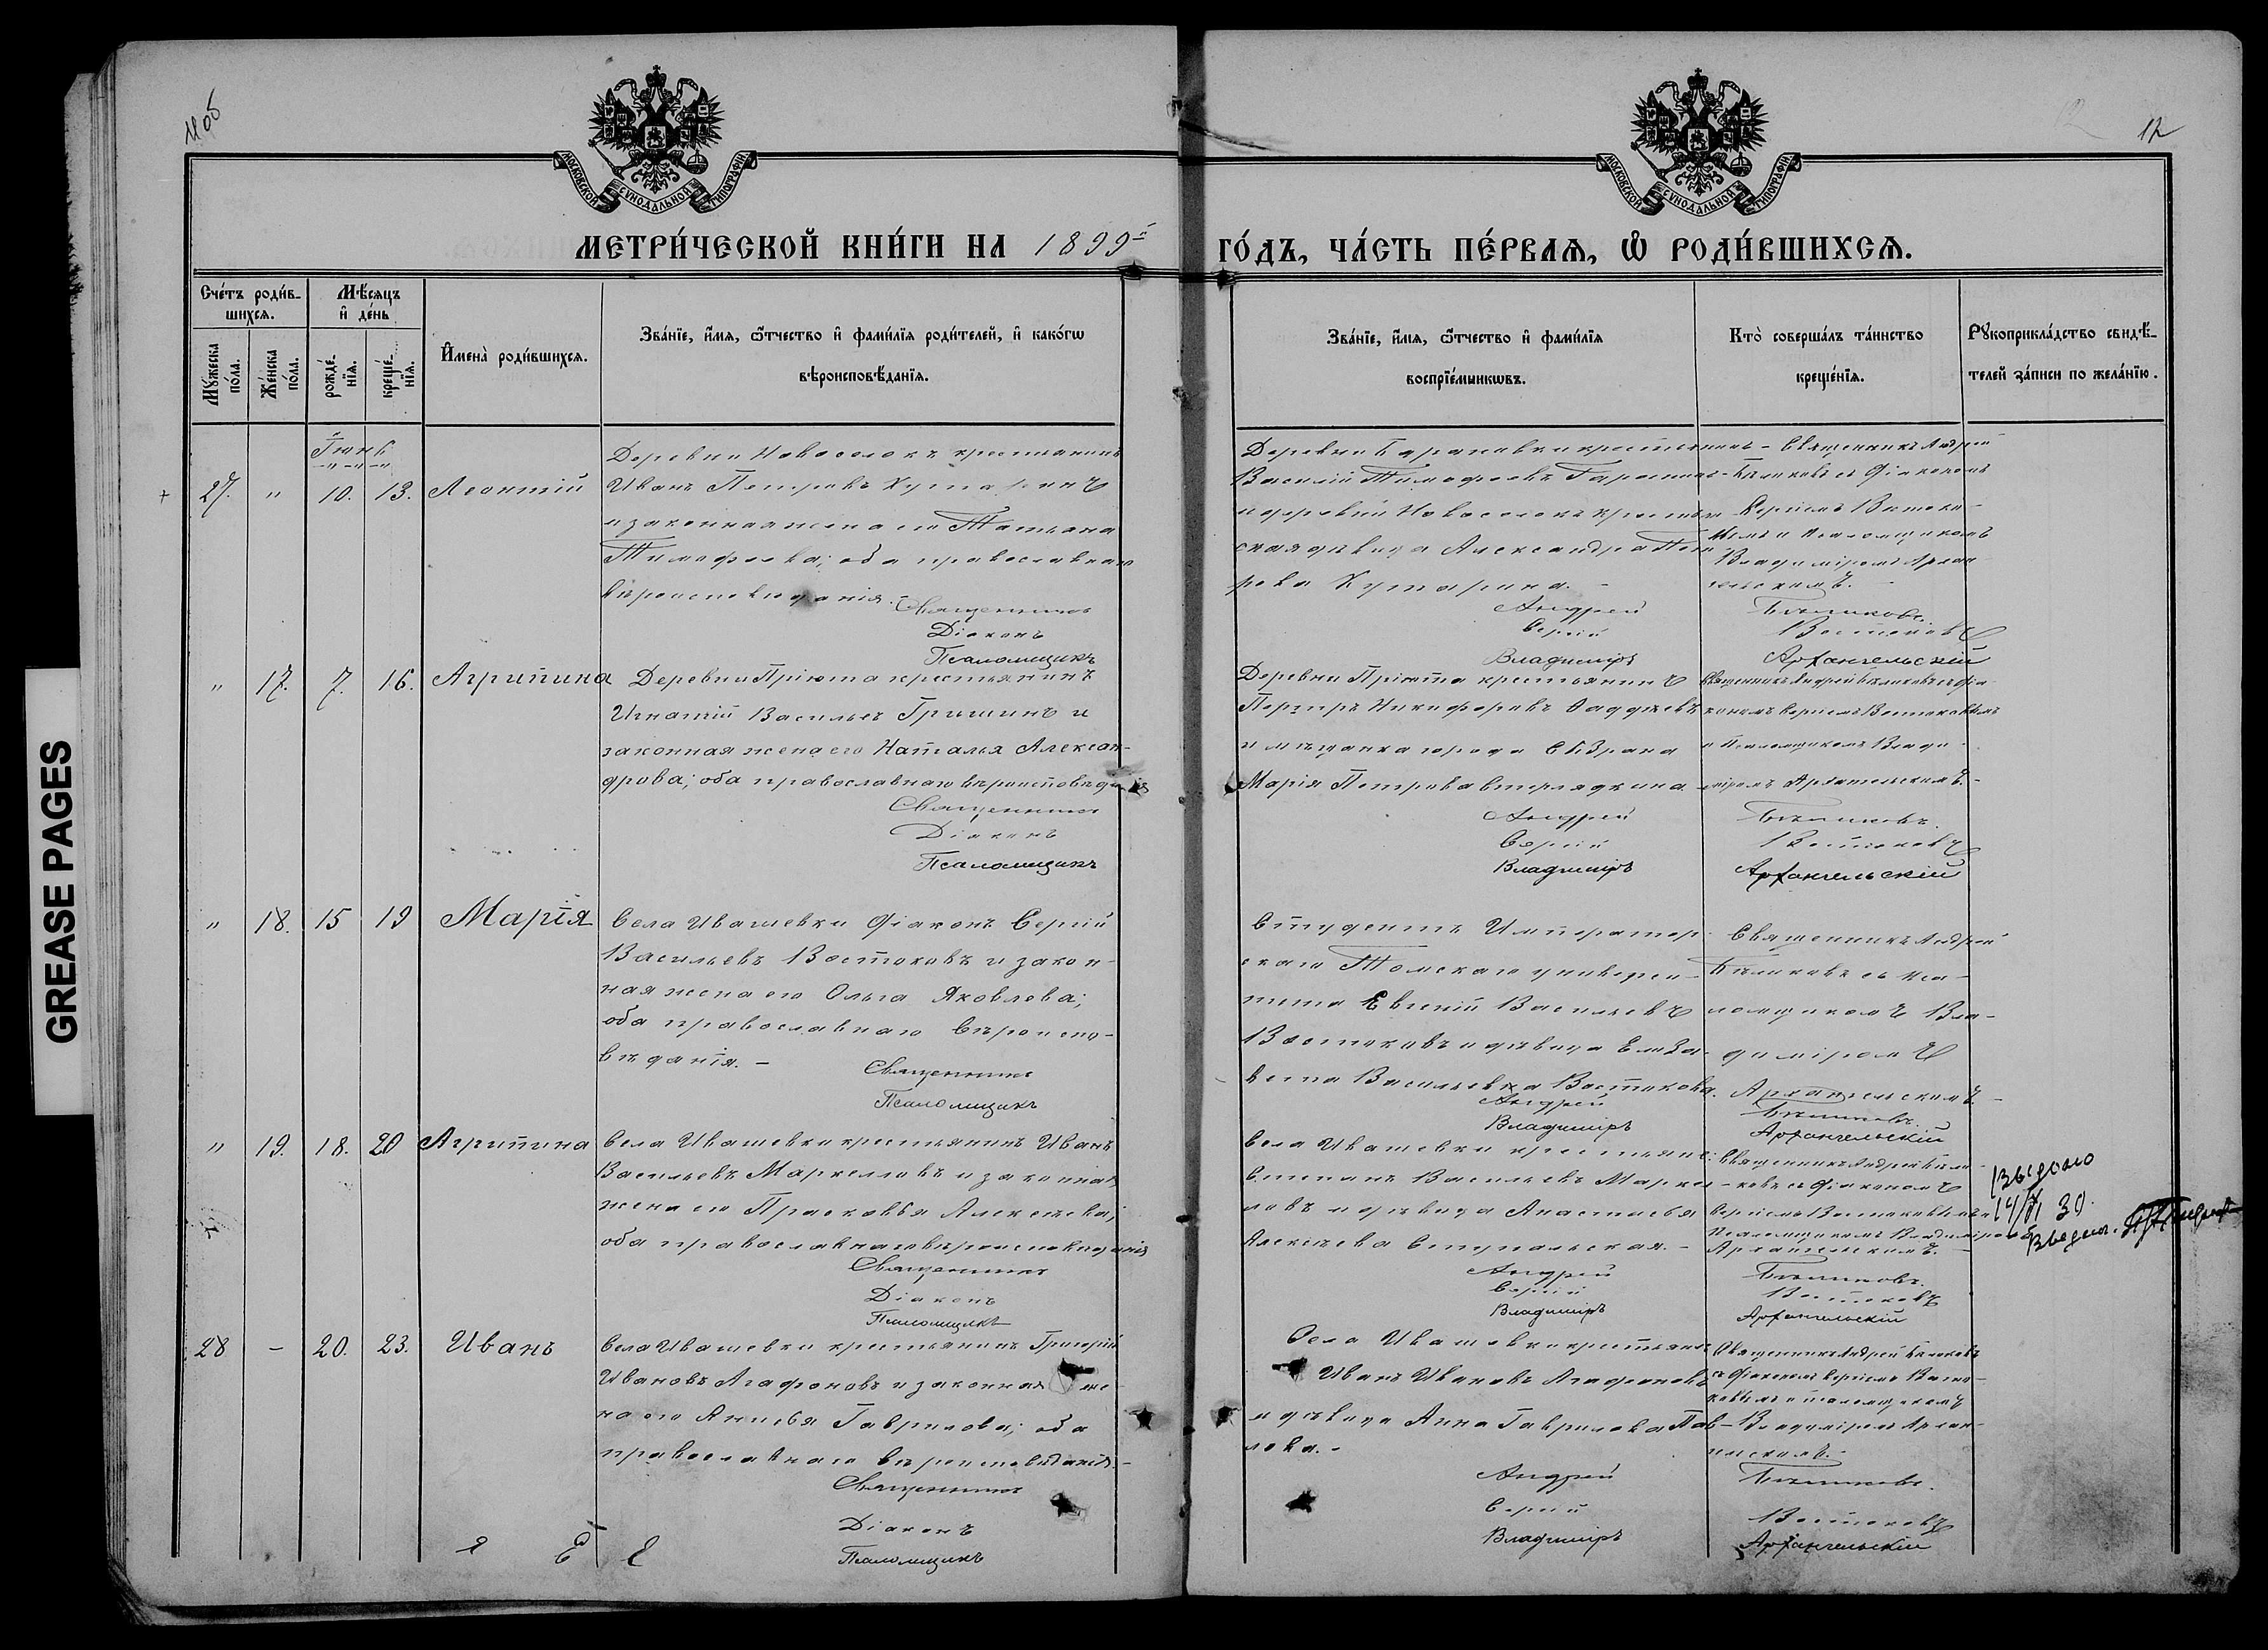 11 об
12
МОСКОВСКОЙ СУНОДАЛЬНОЙ ТИПОГРАФІИ
МОСКОВСКОЙ СУНОДАЛЬНОЙ ТИПОГРАФІИ
МЕТРИ́ЧЕСКОЙ КНИ́ГИ НА 1899й ГО́ДЪ, ЧА́СТЬ ПЕ́РВАѦ, Ѡ РОДИ́ВШИХСѦ.
Сче́тъ роди́в-
шихсѧ.
Мѣ́сѧцъ
и҆ де́нь
Мꙋ́жеска
по́ла.
Же́нска
по́ла.
рожде́-
нїѧ.
креще́-
нїѧ.
И҆мена̀ роди́вшихсѧ.
Зва́нїе, и҆́мѧ, ѻ҆́тчество и҆ фами́лїѧ роди́телей, и҆ како́гѡ
вѣроисповѣ́данїѧ.
Зва́нїе, и҆́мѧ, ѻ҆́тчество и҆ фами́лїѧ
воспрїе́мникѡвъ.
Кто̀ соверша́лъ та́инство
креще́нїѧ.
Рꙋкоприкла́дство свидѣ́-
телей за́писи по жела́нїю.
Іюнь
27. " 10. 13. Леонтій
Деревни Новоселокъ крестьянинъ
Иванъ Петровъ Кутаринъ
и законная жена его Татьяна
Тимофеева; оба православнаго
вѣроисповѣданія.
Священникъ
Діаконъ
Псаломщикъ
крестьянинъ
Василій Тимофеевъ
и деревни Новоселокъ крестьян
ская дѣвица Александра Пет
рова Кутарина. -
Андрей
Сергій
Владиміръ
Священникъ Андрей
Бѣликовъ съ Діакономъ
Сергіемъ Востоко-
вымъ и Псаломщикомъ
Владиміромъ Архан
гельскимъ. -
Бѣликовъ.
Востоковъ
Архангельскій
" 17. 7. 16. Агрипина
Деревни Пріюта крестьянинъ
Игнатій Васильевъ Гришинъ и
законная жена его Наталья Алексан-
дрова; оба православнаго вѣроисповѣданія
Священникъ
Діаконъ
Псаломщикъ
Деревни Пріюта крестьянинъ
Никифоровъ Фаддѣевъ
и мѣщанка города Сызрана
Марія Петрова
Андрей
Сергій
Владиміръ
Священникъ Андрей Бѣликовъ съ Діа-
кономъ Сергіемъ Востоковымъ
и Псаломщикомъ Влади-
міромъ Архангельскимъ. -
Бѣликовъ.
Востоковъ
Архангельскій
" 18. 15 19 Марія
Села Ивашевки Діаконъ Сергій
Васильевъ Востоковъ и закон-
ная жена его Ольга Яковлева;
оба православнаго вѣроиспо-
вѣданія. -
Священникъ
Псаломщикъ
Студентъ Император-
скаго Томскаго универси-
тета Евгеній Васильевъ
Востоковъ и дѣвица Елиза-
вета Васильевна Востокова.
Андрей
Владиміръ
Священникъ Андрей
Бѣликовъ съ Пса-
ломщикомъ Вла-
диміромъ
Архангельскимъ. -
Бѣликовъ.
Архангельскій
" 19. 18. 20 Агрипина
Села Ивашевки крестьянинъ Иванъ
Васильевъ Маркеловъ и законная
жена его Прасковья Алексѣева;
оба православнаго вѣроисповѣданія
Священникъ
Діаконъ
Псаломщикъ
Села Ивашевки крестьянинъ
Степанъ Васильевъ Марке-
ловъ и дѣвица Анастасья
Алексѣева Ступальская. -
Андрей
Сергій
Владиміръ
Священникъ Андрей Бѣли-
ковъ съ Діакономъ
Сергіемъ Востоковымъ и
Псаломщикомъ Владиміромъ
Архангельскимъ. -
Бѣликовъ.
Востоковъ
Архангельскій
Выдано
28 - 20. 23. Иванъ
Села Ивашевки крестьянинъ Григорій
Ивановъ Агафоновъ и законная же-
на его Анисья Гаврилова; оба
православнаго вѣроисповѣданія. -
Священникъ
Діаконъ
Псаломщикъ
Села Ивашевки крестьянинъ
Иванъ Ивановъ Агафоновъ
и дѣвица Анна Гаврилова Пав-
лова. -
Андрей
Сергій
Владиміръ
Священникъ Андрей Бѣликовъ
съ Діакономъ Сергіемъ Восто-
ковымъ и псаломщикомъ
Владиміромъ Архан-
гельскимъ. -
Бѣликовъ.
Востоковъ
Архангельскій
GREASE PAGES